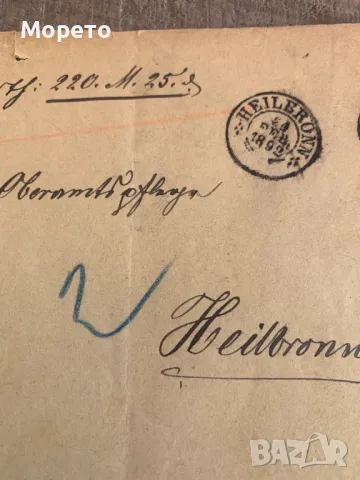 Морето
th: 220. M. 25. ₰
HEILBRONN
21
FEB.
1892
Oberamtspflege
2
Heilbronn
BAZAR